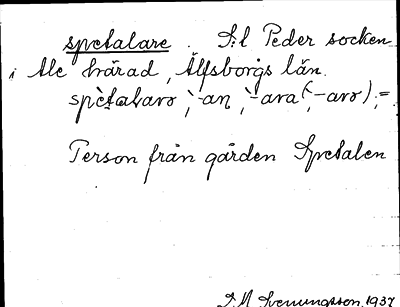 spetalare. S:t Peder socken
i Ale härad, Älfsborgs län.
spètalarə, -an, -ara (-arə); =
Person från gården Spetalen
J. M. Svenningsson 1937